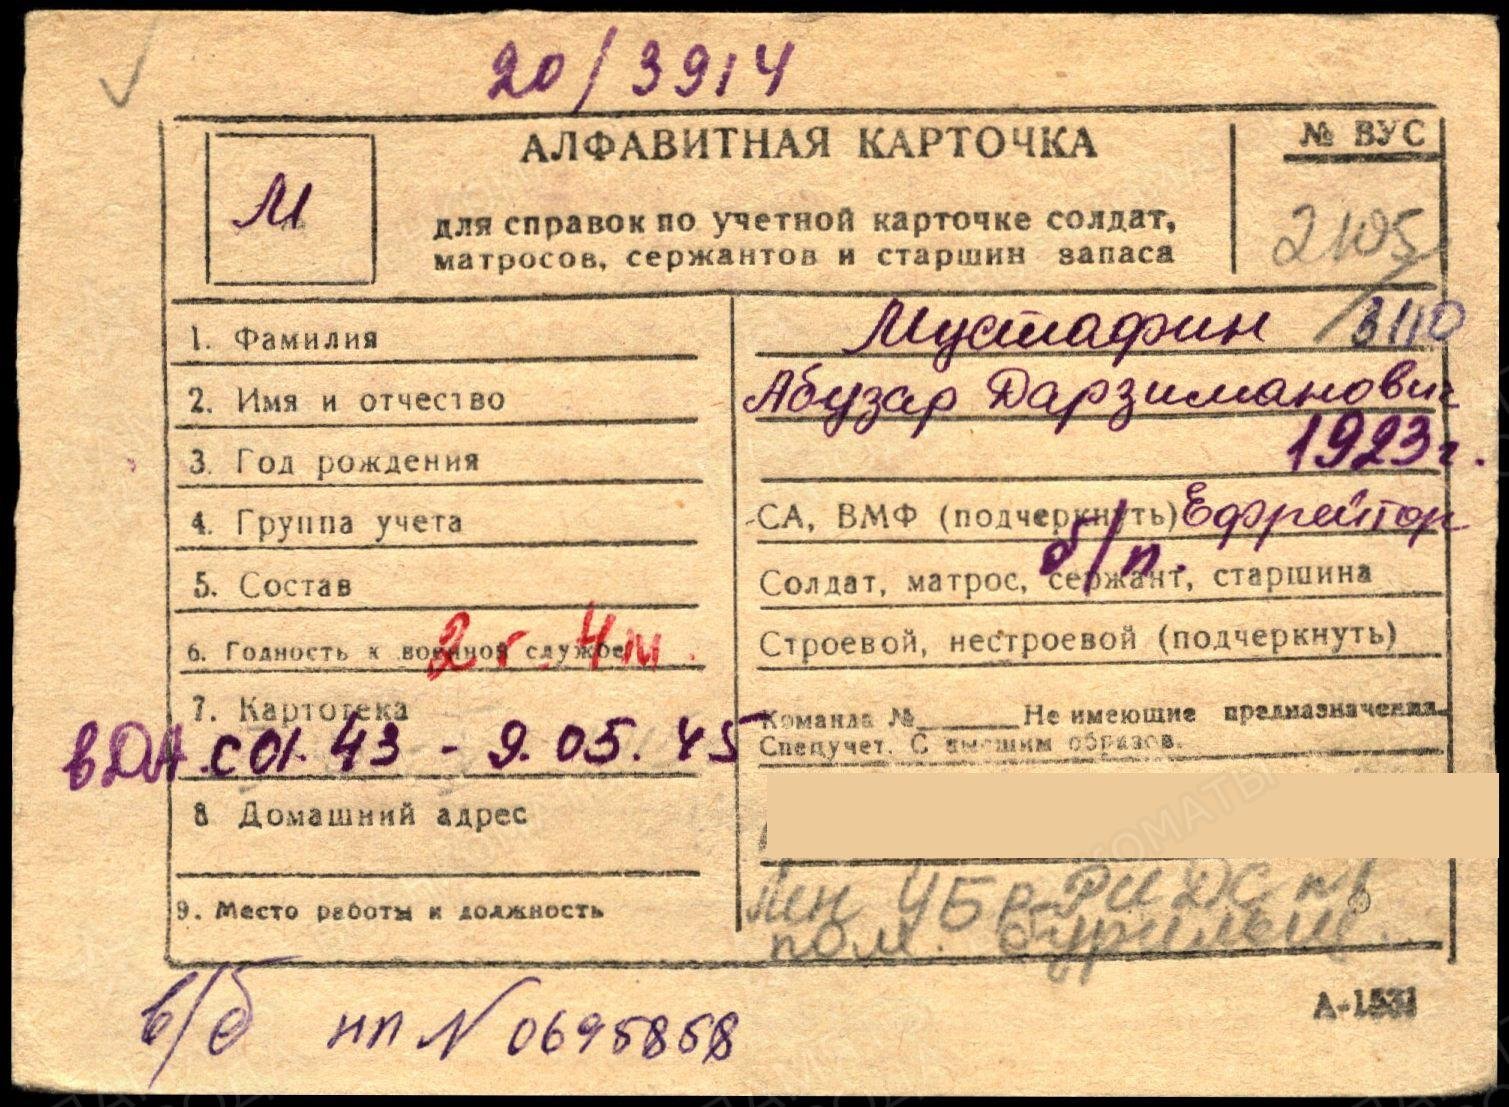 20/3914
АЛФАВИТНАЯ КАРТОЧКА
№ ВУС
М
для справок по учетной карточке солдат,
матросов, сержантов и старшин запаса
2105
1. Фамилия
Мустафин
3110
2. Имя и отчество
Абузар Дарзиманович
3. Год рождения
1923г.
4. Группа учета
СА, ВМФ (подчеркнуть) Ефрейтор
б/п.
5. Состав
Солдат, матрос, сержант, старшина
6. Годность к военной службе
2 г. 4 м.
Строевой, нестроевой (подчеркнуть)
7. Картотека
Команда №______ Не имеющие предназначения
Спецучет. С высшим образов.
в ДА. с 01. 43 - 9. 05. 45
8 Домашний адрес
9. Место работы и должность
Лен УБР
пом.
А-1531
в/б нп № 0695858